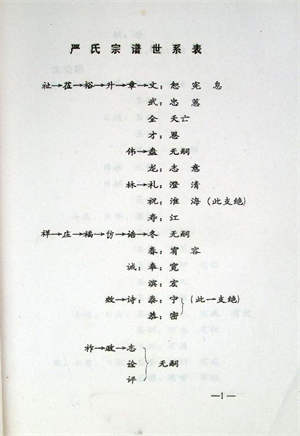 严氏宗谱世系表
社→茬→裕→升→章→文：恕 宪 息
武：忠 慕
全 夭亡
才：恩
伟→盎 无嗣
龙：志 意
林→礼：澄 清
祝：淮 海（此支绝）
寿：江
祥→庄→福→访→诰→冬 无嗣
春：宥 容
诚：奉：宽
滨：宏
效→诗：泰：宁（此一支绝）
恭：密
祚→敢→志
诠 无嗣
评
—1—